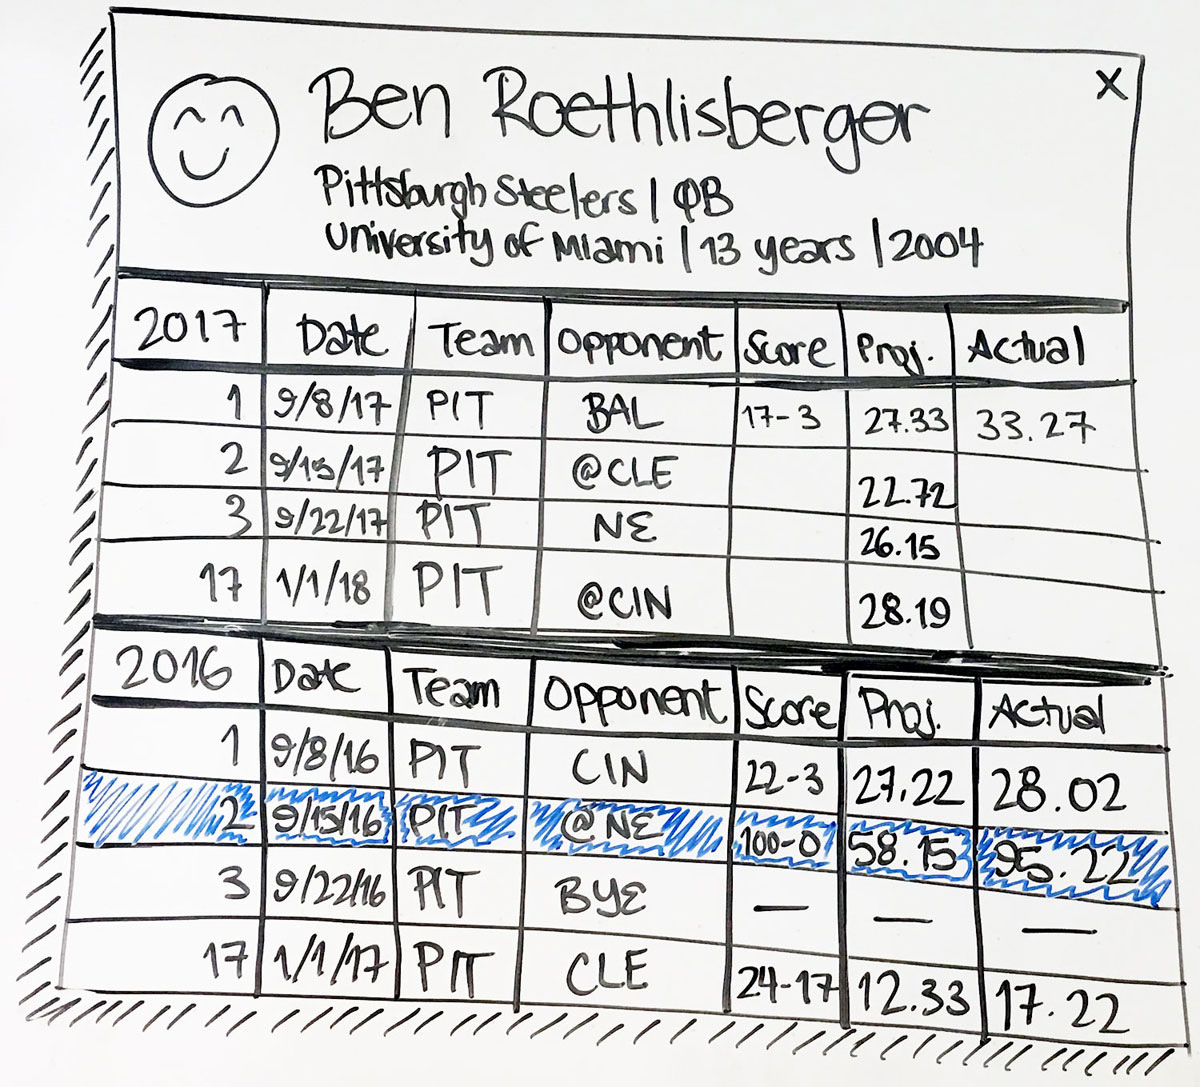 Ben Roethlisberger X
Pittsburgh Steelers | QB
University of Miami | 13 years | 2004
2017 Date Team Opponent Score Proj. Actual
1 9/8/17 PIT BAL 17-3 27.33 33.27
2 9/15/17 PIT @CLE 22.72
3 9/22/17 PIT NE 26.15
17 1/1/18 PIT @CIN 28.19
2016 Date Team Opponent Score Proj. Actual
1 9/8/16 PIT CIN 22-3 27.22 28.02
2 9/15/16 PIT @NE 100-0 58.15 95.22
3 9/22/16 PIT BYE — — —
17 1/1/17 PIT CLE 24-17 12.33 17.22